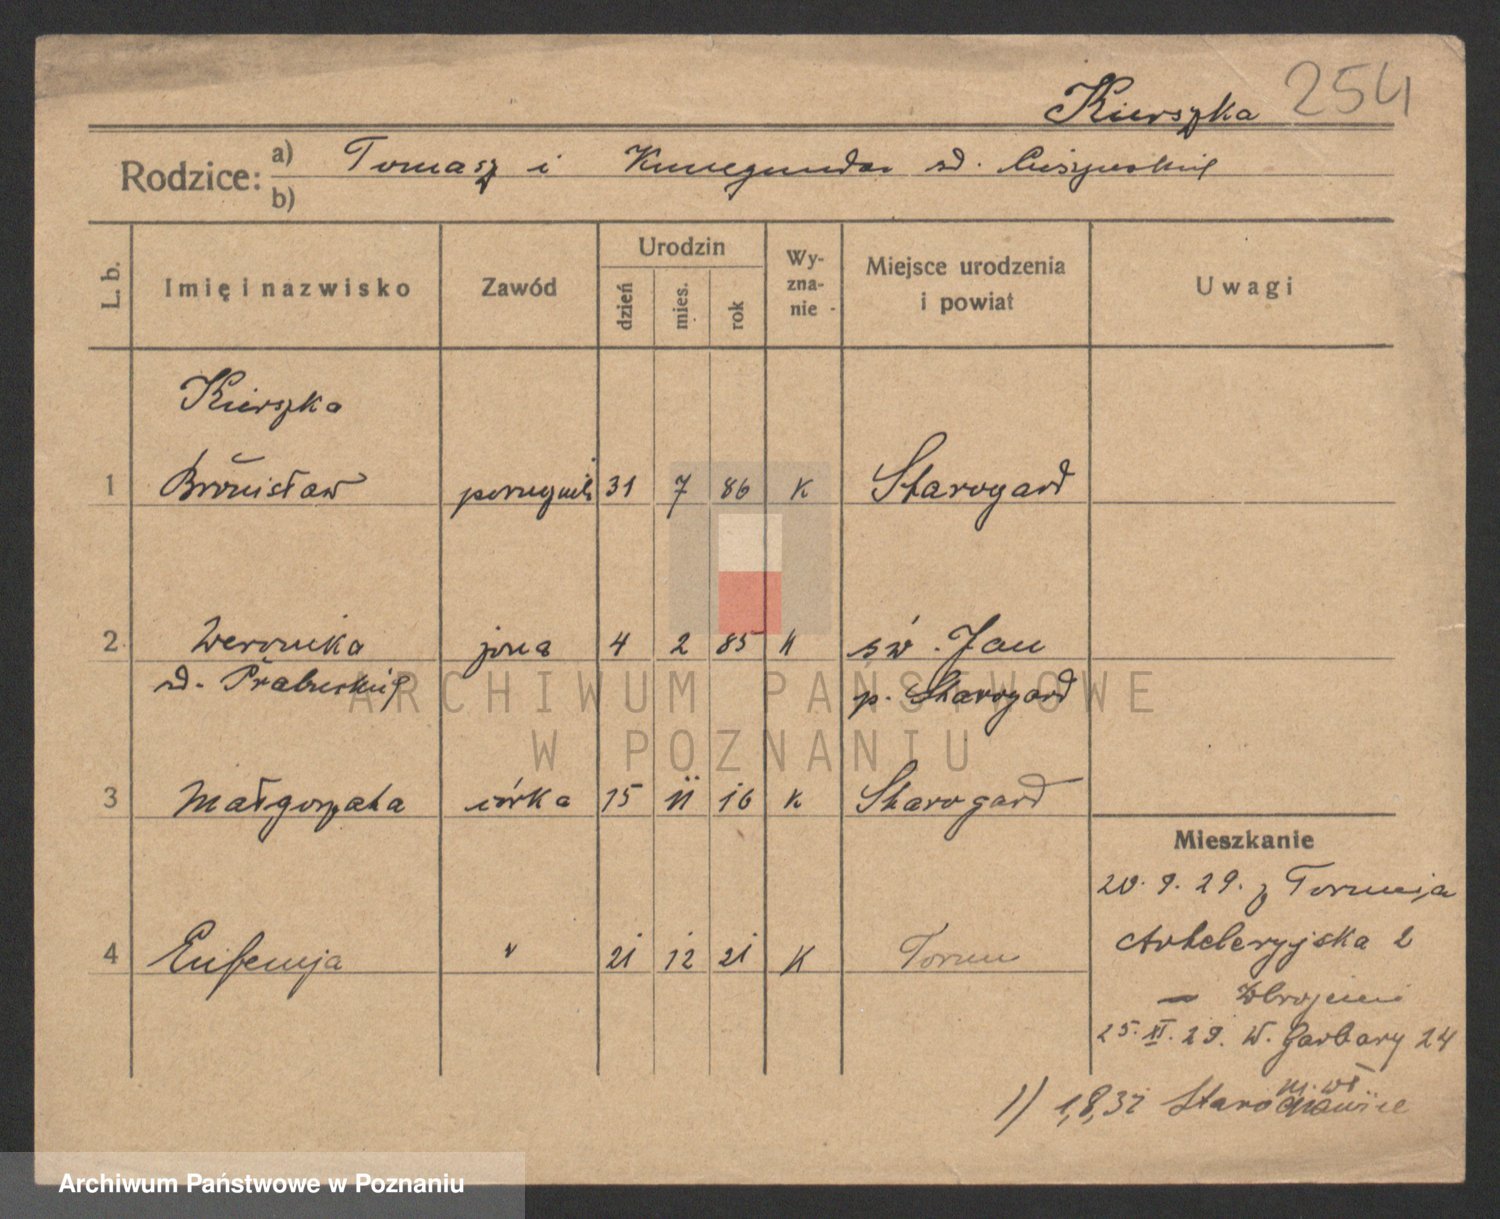 Kierszka 254
Rodzice: a) Tomasz i Kunegunda zd.
b)
L. b. Imię i nazwisko Zawód Urodzin dzień mies. rok Wy-zna-nie Miejsce urodzenia i powiat Uwagi
Kierszka
1 Bronisław 31 7 86 K Starogard
2 Weronika żona 4 2 85 K św. Jan
zd. p. Starogard
3 Małgorzata córka 15 11 16 K Starogard
4 Eufemja " 21 12 21 K Toruń
Mieszkanie
20.9.29. z Torunia
Artyleryjska 2
25.XI.29. W. Garbary 24
1) 1,8,32
ARCHIWUM PAŃSTWOWE
W POZNANIU
Archiwum Państwowe w Poznaniu